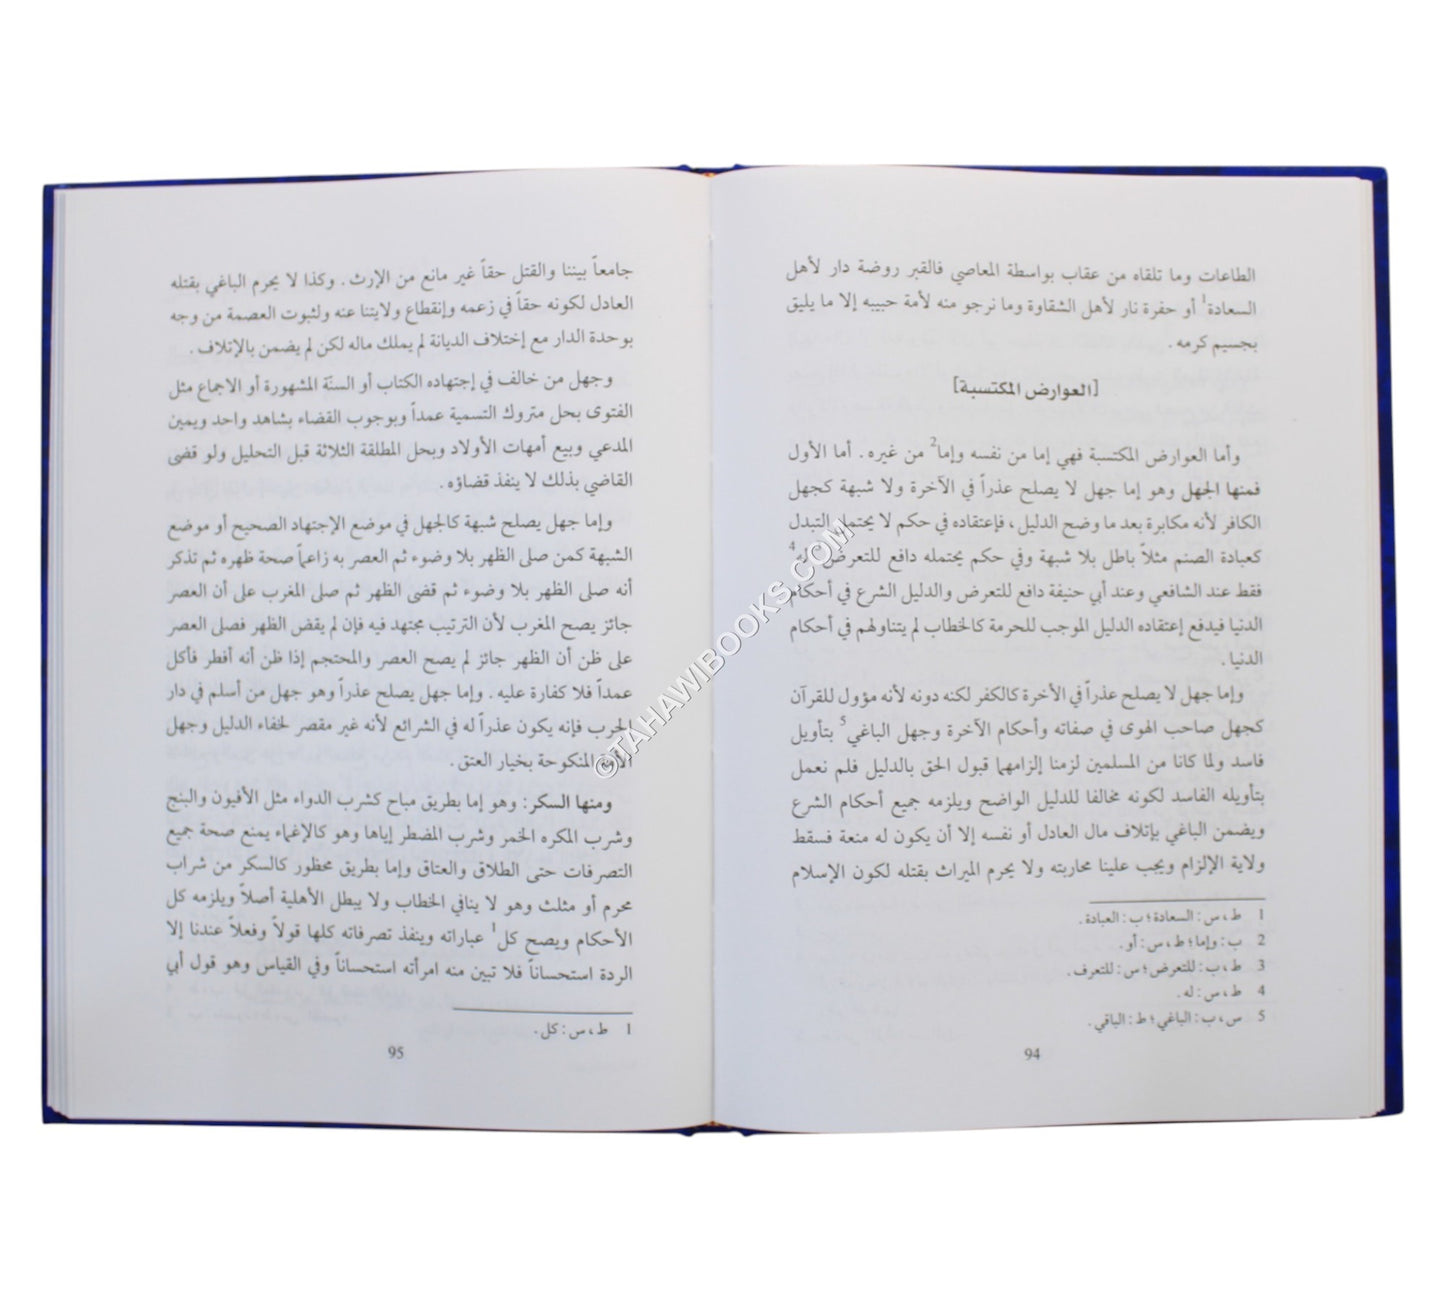 الطاعات وما تلقاه من عقاب بواسطة المعاصي فالقبر روضة دار لأهل
السعادة1 أو حفرة نار لأهل الشقاوة وما نرجو منه لأمة حبيبه إلا ما يليق
بجسيم كرمه .
[العوارض المكتسبة]
وأما العوارض المكتسبة فهي إما من نفسه وإما2 من غيره . أما الأول
فمنها الجهل وهو إما جهل لا يصلح عذراً في الآخرة ولا شبهة كجهل
الكافر لأنه مكابرة بعد ما وضح الدليل ، فإعتقاده في حكم لا يحتمل التبدل
كعبادة الصنم مثلاً باطل بلا شبهة وفي حكم يحتمله دافع للتعرض له4
فقط عند الشافعي وعند أبي حنيفة دافع للتعرض والدليل الشرع في أحكام
الدنيا فيدفع إعتقاده الدليل الموجب للحرمة كالخطاب لم يتناولهم في أحكام
الدنيا .
وإما جهل لا يصلح عذراً في الأخرة كالكفر لكنه دونه لأنه مؤول للقرآن
كجهل صاحب الهوى في صفاته وأحكام الآخرة وجهل الباغي5 بتأويل
فاسد ولما كانا من المسلمين لزمنا إلزامهما قبول الحق بالدليل فلم نعمل
بتأويله الفاسد لكونه مخالفا للدليل الواضح ويلزمه جميع أحكام الشرع
ويضمن الباغي بإتلاف مال العادل أو نفسه إلا أن يكون له منعة فسقط
ولاية الإلزام ويجب علينا محاربته ولا يحرم الميراث بقتله لكون الإسلام
1 ط ، س : السعادة ؛ ب : العبادة .
2 ب : وإما ؛ ط ، س : أو .
3 ط ، ب : للتعرض ؛ س : للتعرف .
4 ط ، س : له .
5 س ، ب : الباغي ؛ ط : الباقي .
94
جامعاً بيننا والقتل حقاً غير مانع من الإرث . وكذا لا يحرم الباغي بقتله
العادل لكونه حقاً في زعمه وإنقطاع ولايتنا عنه ولثبوت العصمة من وجه
بوحدة الدار مع إختلاف الديانة لم يملك ماله لكن لم يضمن بالإتلاف .
وجهل من خالف في إجتهاده الكتاب أو السنّة المشهورة أو الاجماع مثل
الفتوى بحل متروك التسمية عمداً وبوجوب القضاء بشاهد واحد ويمين
المدعي وبيع أمهات الأولاد وبحل المطلقة الثلاثة قبل التحليل ولو قضى
القاضي بذلك لا ينفذ قضاؤه .
وإما جهل يصلح شبهة كالجهل في موضع الإجتهاد الصحيح أو موضع
الشبهة كمن صلى الظهر بلا وضوء ثم العصر به زاعماً صحة ظهره ثم تذكر
أنه صلى الظهر بلا وضوء ثم قضى الظهر ثم صلى المغرب على أن العصر
جائز يصح المغرب لأن الترتيب مجتهد فيه فإن لم يقض الظهر فصلى العصر
على ظن أن الظهر جائز لم يصح العصر والمحتجم إذا ظن أنه أفطر فأكل
عمداً فلا كفارة عليه . وإما جهل يصلح عذراً وهو جهل من أسلم في دار
الحرب فإنه يكون عذراً له في الشرائع لأنه غير مقصر لخفاء الدليل وجهل
الأمة المنكوحة بخيار العتق .
ومنها السكر : وهو إما بطريق مباح كشرب الدواء مثل الأفيون والبنج
وشرب المكره الخمر وشرب المضطر إياها وهو كالإغماء يمنع صحة جميع
التصرفات حتى الطلاق والعتاق وإما بطريق محظور كالسكر من شراب
محرم أو مثلث وهو لا ينافي الخطاب ولا يبطل الأهلية أصلاً ويلزمه كل
الأحكام ويصح كل1 عباراته وينفذ تصرفاته كلها قولاً وفعلاً عندنا إلا
الردة استحساناً فلا تبين منه امرأته استحساناً وفي القياس وهو قول أبي
1 ط ، س : كل .
95
©TAHAWIBOOKS.COM